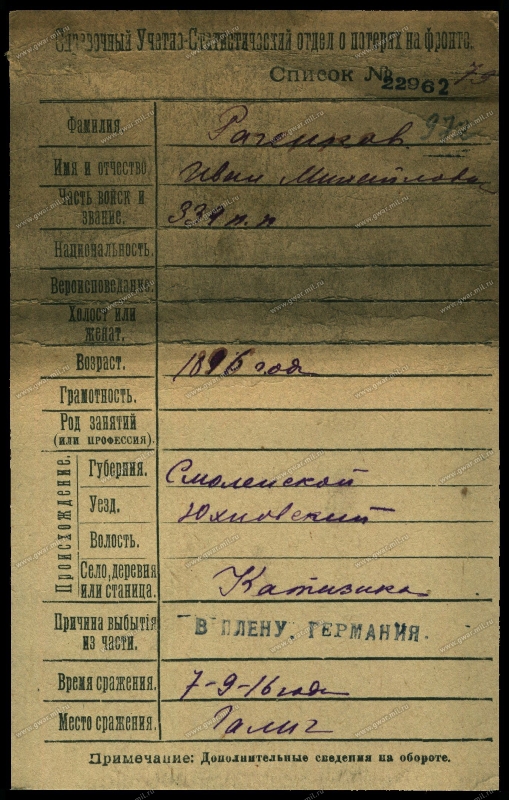 Справочный Учетно-Статистический отдел о потерях на фронте.
Список № 22962
972
Фамилия.
Имя и отчество Иван Михайлович
Часть войск и звание. 339 п. п
Национальность.
Вероисповедание.
Холост или женат.
Возраст. 1896 год
Грамотность.
Род занятий (или профессия).
Происхождение.
Губерния. Смоленской
Уезд. Юхновский
Волость.
Село, деревня или станица.
Причина выбытія из части. В ПЛЕНУ. ГЕРМАНИЯ.
Время сражения. 7-9-16 года
Место сражения. Галич
Примечание: Дополнительные сведения на обороте.
www.gwar.mil.ru